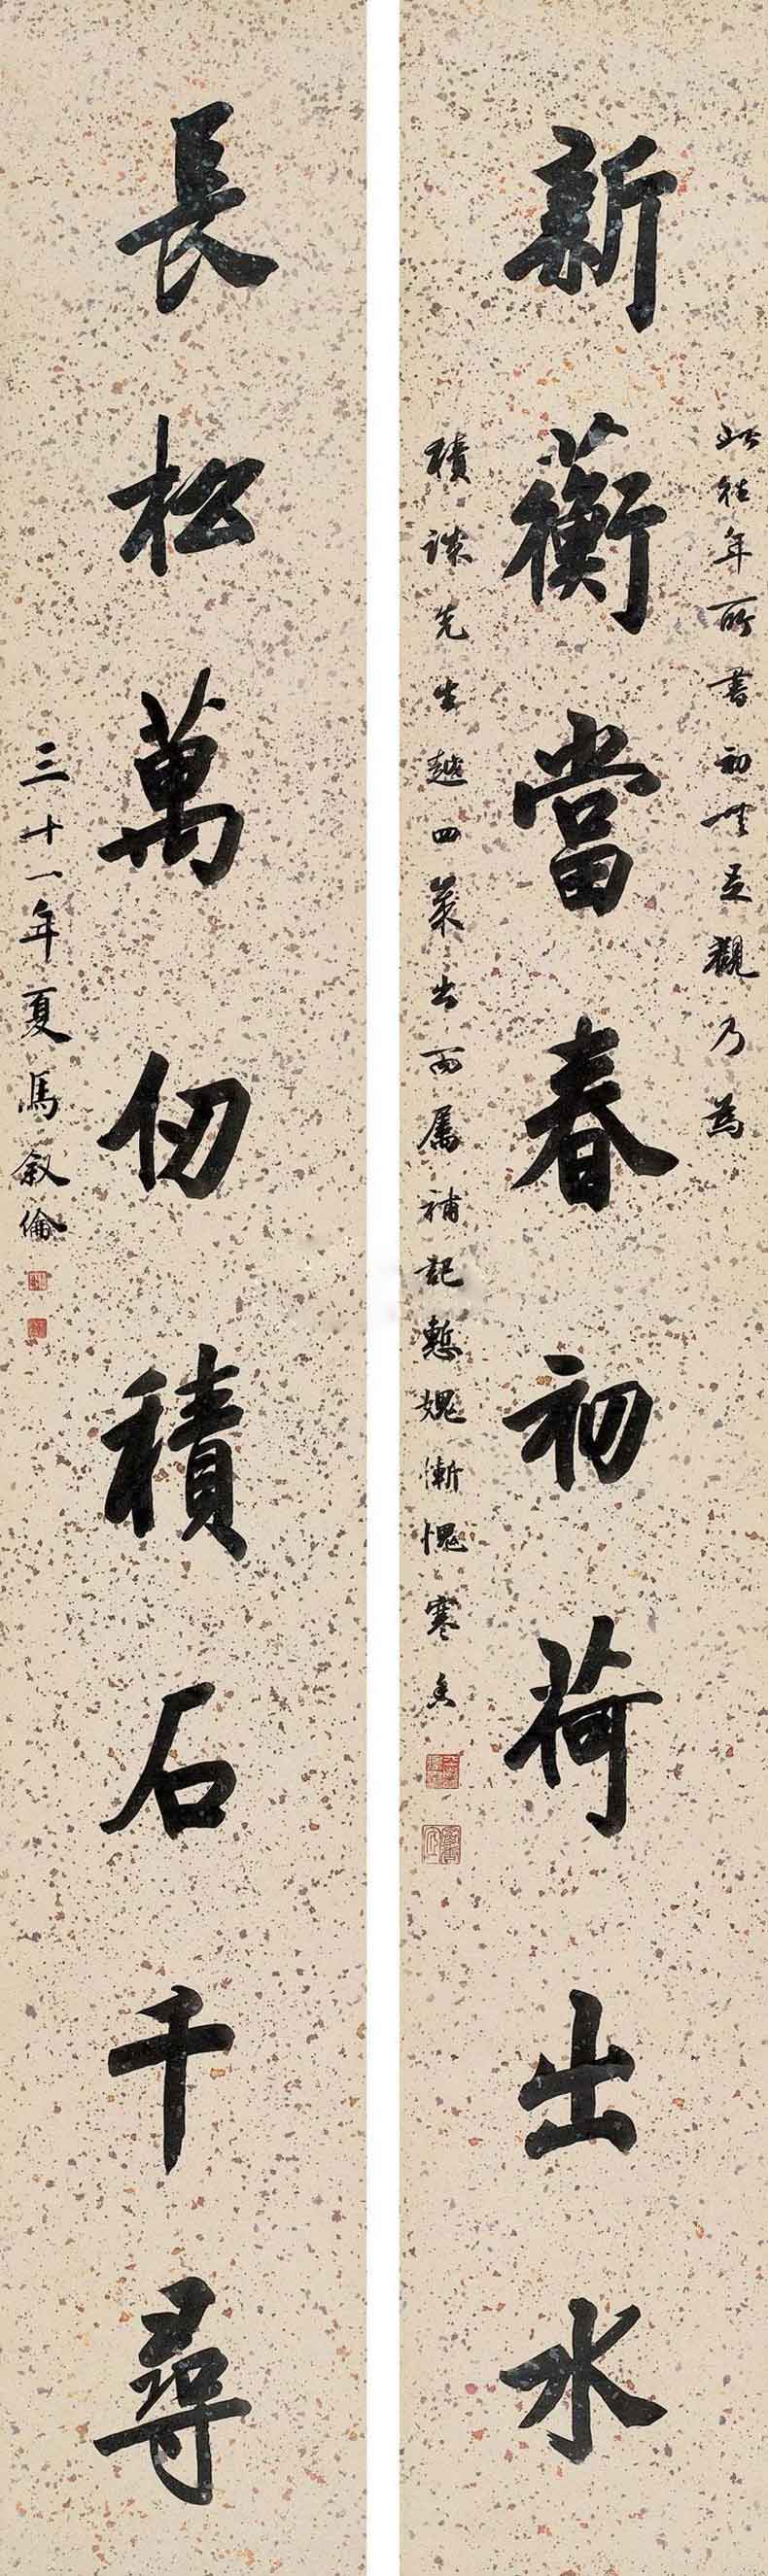 新蘅當春初荷出水
此往年所書初無足觀乃為
積諆先生越四歲出而屬補記慙媿慚愧寒香
長松萬仞積石千尋
三十一年夏馬叙倫